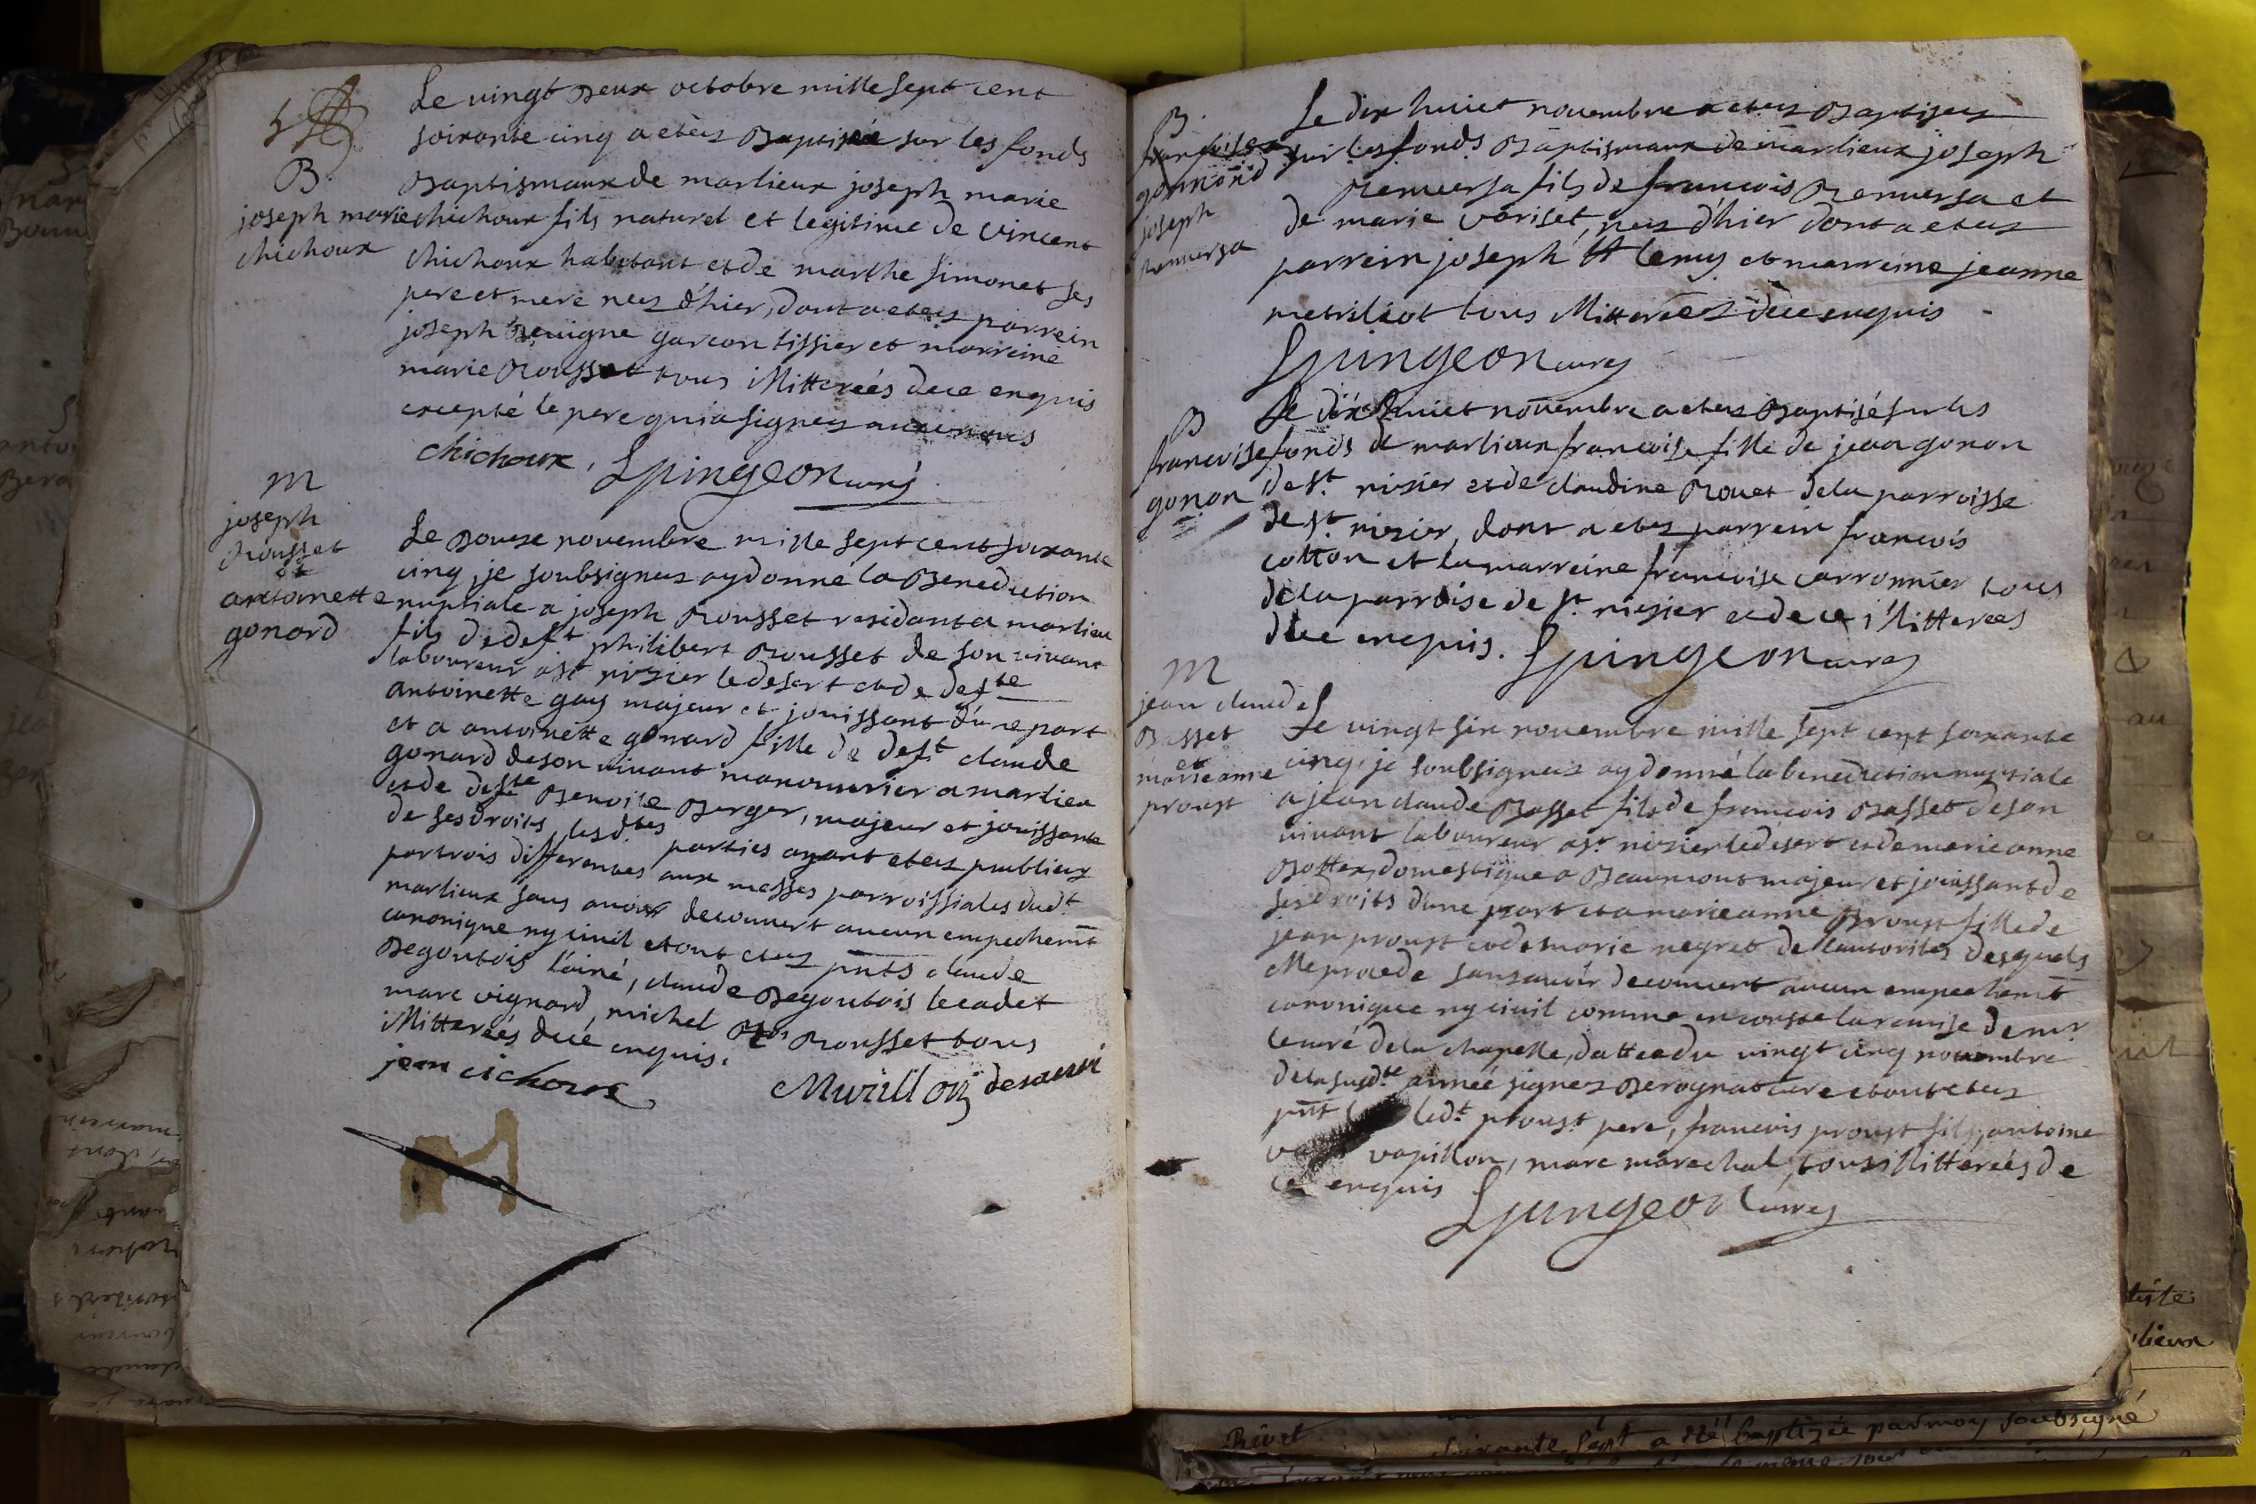 Le vingt deux octobre mille sept cent
soixante cinq a etéz Baptisé sur les fonds
B. Baptismaux de marlieux joseph marie
joseph marie chichoux fils naturel et legitime de vincent
chichoux chichoux habitant et de marthe simonet ses
pere et mere nez d'hier, dont a etez parrein
joseph Bevigne garcon tissier et marreine
marie Rousset tous illitereés de ce enquis
excepté le pere qui a signez avec nous
chichoux, Spingeon curé
m
joseph
Rousset
et
antoinette
gonard
Le Douze novembre mille sept cent soixante
cinq, je soubsignez ay donné la Benediction
nuptiale a joseph Rousset residant a marlieu
fils de deft philibert Rousset de son vivant
laboureur a st nizier le desert et de defte
antoinette gay majeur et jouissant d'une part
et a antoinette gonard fille de deft claude
gonard de son vivant manouvrier a marlieu
et de defte Benoite Berger, majeur et jouissante
de ses droits, les dtes parties ayant etez publiez
par trois differentes aux messes parroissiales dudt
marlieux sans avoir decouvert aucun empechemt
canonique ny civil et ont etez pnts claude
Degoutois l'ainé, claude Degoutois le cadet
marc vignard, michel Rousset tous
illitereés de ce enquis.
jean cichoux Murillon desservi
B.
francoise
gonnond
joseph
Renversa
Le dix huict novembre a etez Baptisez
sur les fonds Baptismaux de marlieux joseph
Renversa fils de francois Renversa et
de marie variset, nez d'hier dont a etez
parrein joseph lemy et marreine jeanne
metriliot tous illitereés de ce enquis
Spingeon curez
B
francoise
gonon
Le dix huict novembre a etez Baptisé sur les
fonds de marlieux francoise fille de jean gonon
de st nizier et de claudine Rouet de la parroisse
de st nizier, dont a etez parrein francois
cotton et la marreine francoise carronnier tous
de la parroise de st nizier et de ce illitereés
de ce enquis. Spingeon curez
m
jean claude
Basset
et
marie anne
proust
Le vingt six novembre mille sept cent soixante
cinq, je soubsignez ay donné la benediction nuptiale
a jean claude Basset fils de francois Basset de son
vivant laboureur a st nizier le desert et de marie anne
Bottex, domestique a Beaumont majeur et jouissant de
ses droits d'une part et a marie anne proust fille de
jean proust et de marie negret de l'autorités desquels
elle procede sans avoir decouvert aucun empechemt
canonique ny civil comme en conste la remise de mr
le curé de la chapelle, dattee du vingt cinq novembre
de la sudte année signez Berognat cure et ont etez
pnt ledt proust pere, francois proust fils, antoine
vapillon, marc marechal, tous illitereés de
ce enquis Spingeon curez
Rivet
soixante sept a été baptizée par moy soubsigné